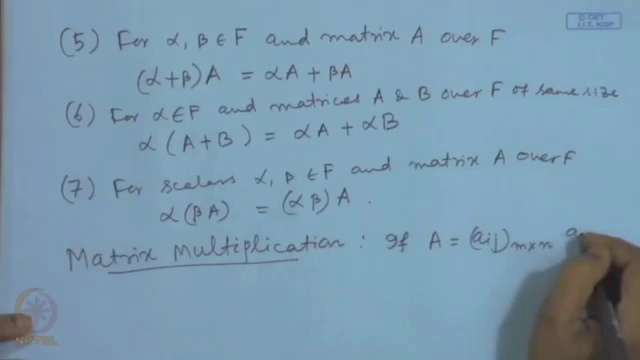 © CET
I.I.T. KGP
(5) For α, β ∈ F and matrix A over F
(α+β)A = αA + βA
(6) For α∈F and matrices A & B over F of same size
α(A+B) = αA + αB
(7) For scalars α, β ∈ F and matrix A over F
α(βA) = (αβ)A.
Matrix Multiplication : If A = (aij)m×n
NPTEL